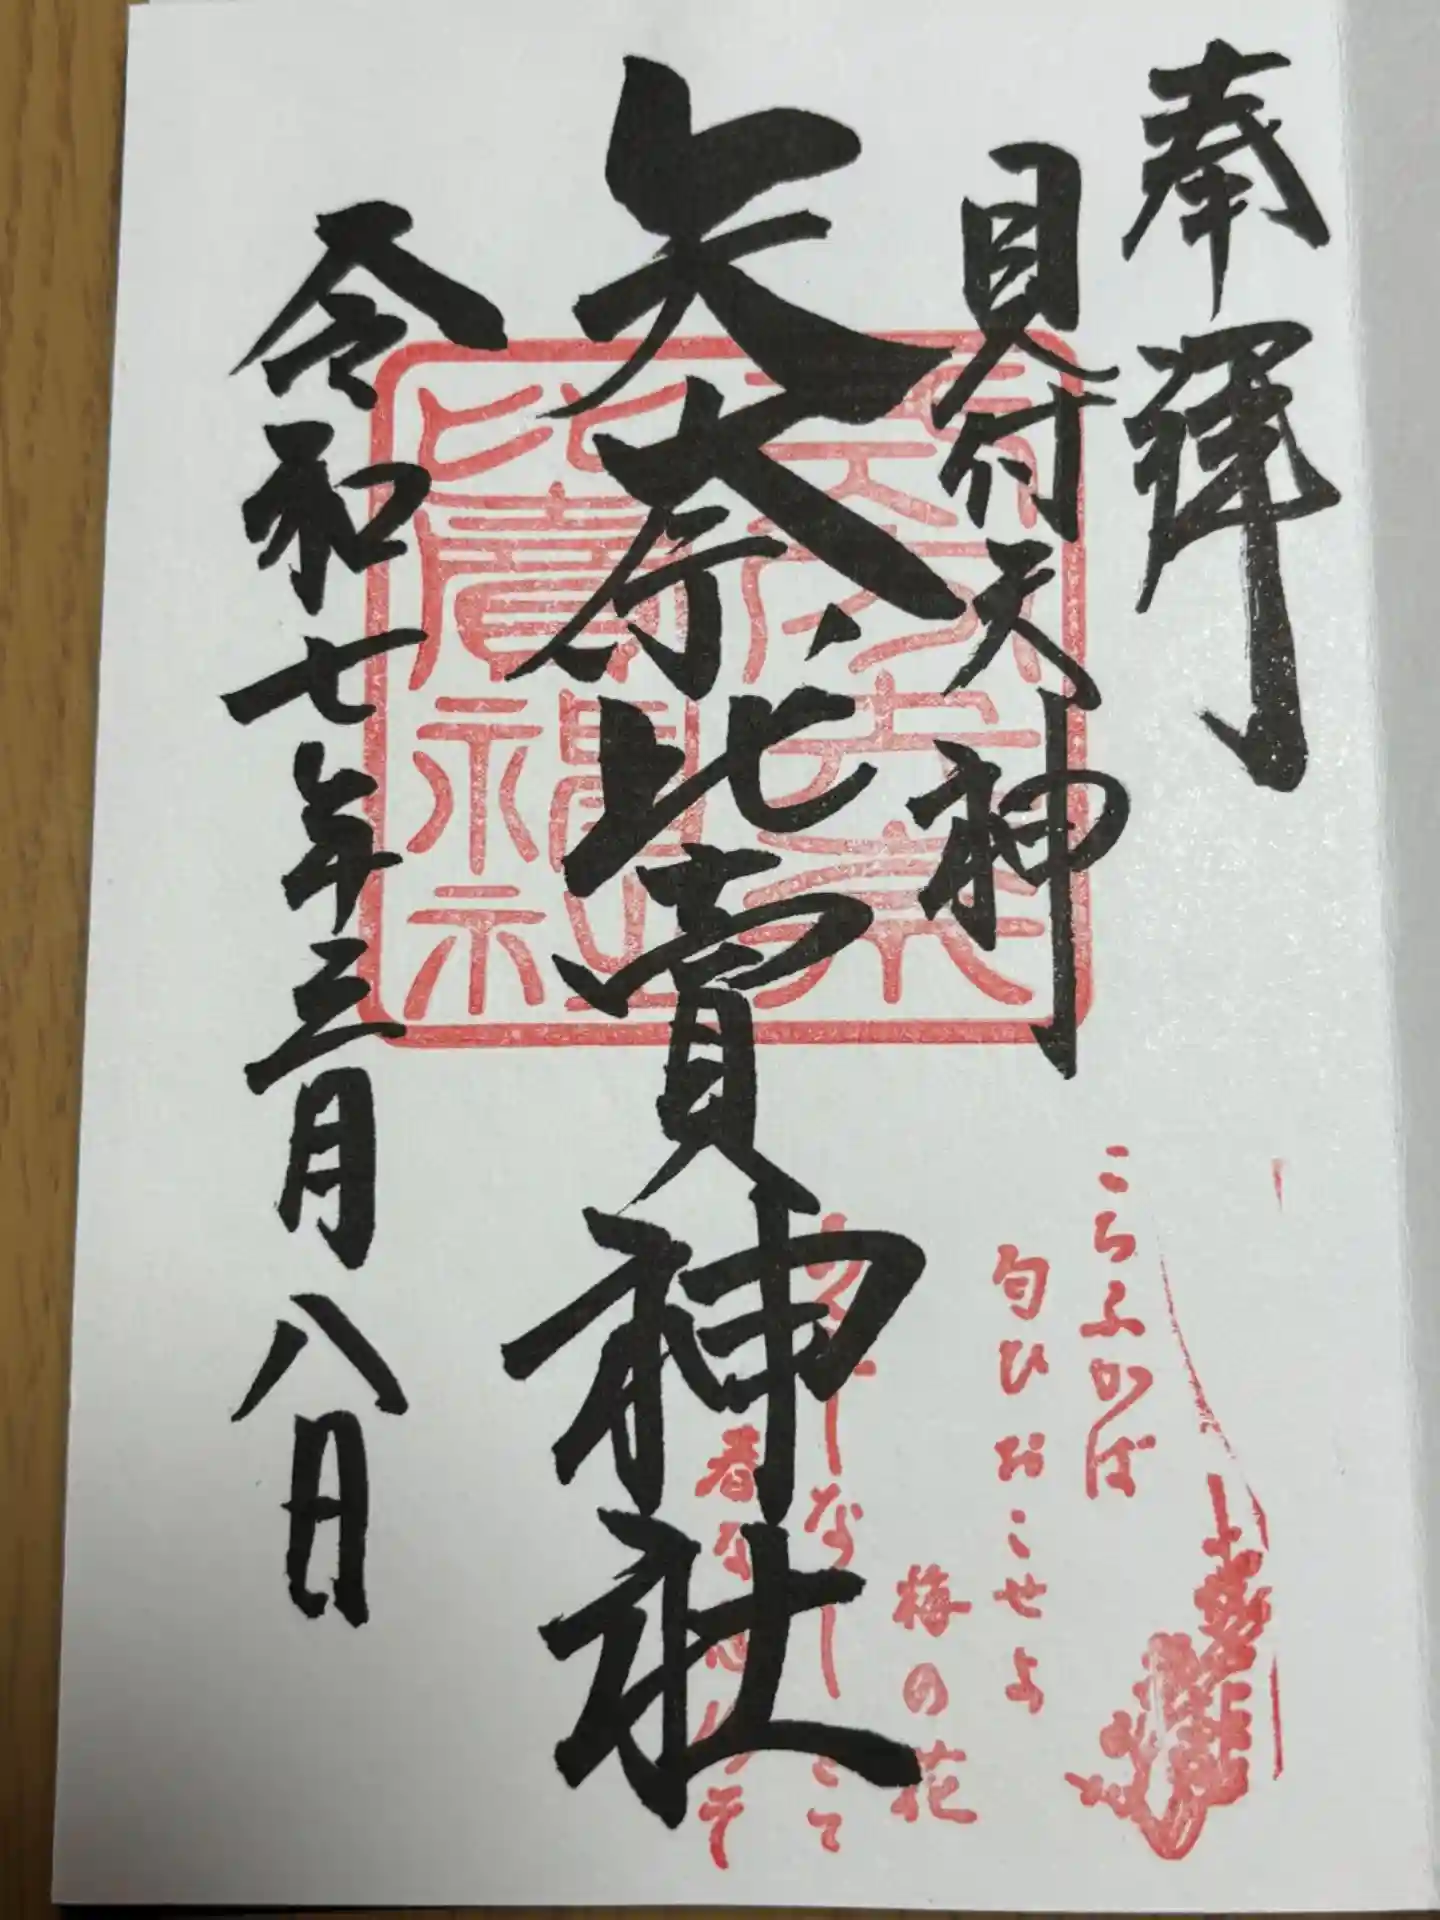 奉拝
見付天神
矢奈比賣神社
令和七年三月八日
こちふかば
匂ひおこせよ
梅の花
なしとて
春な忘れそ